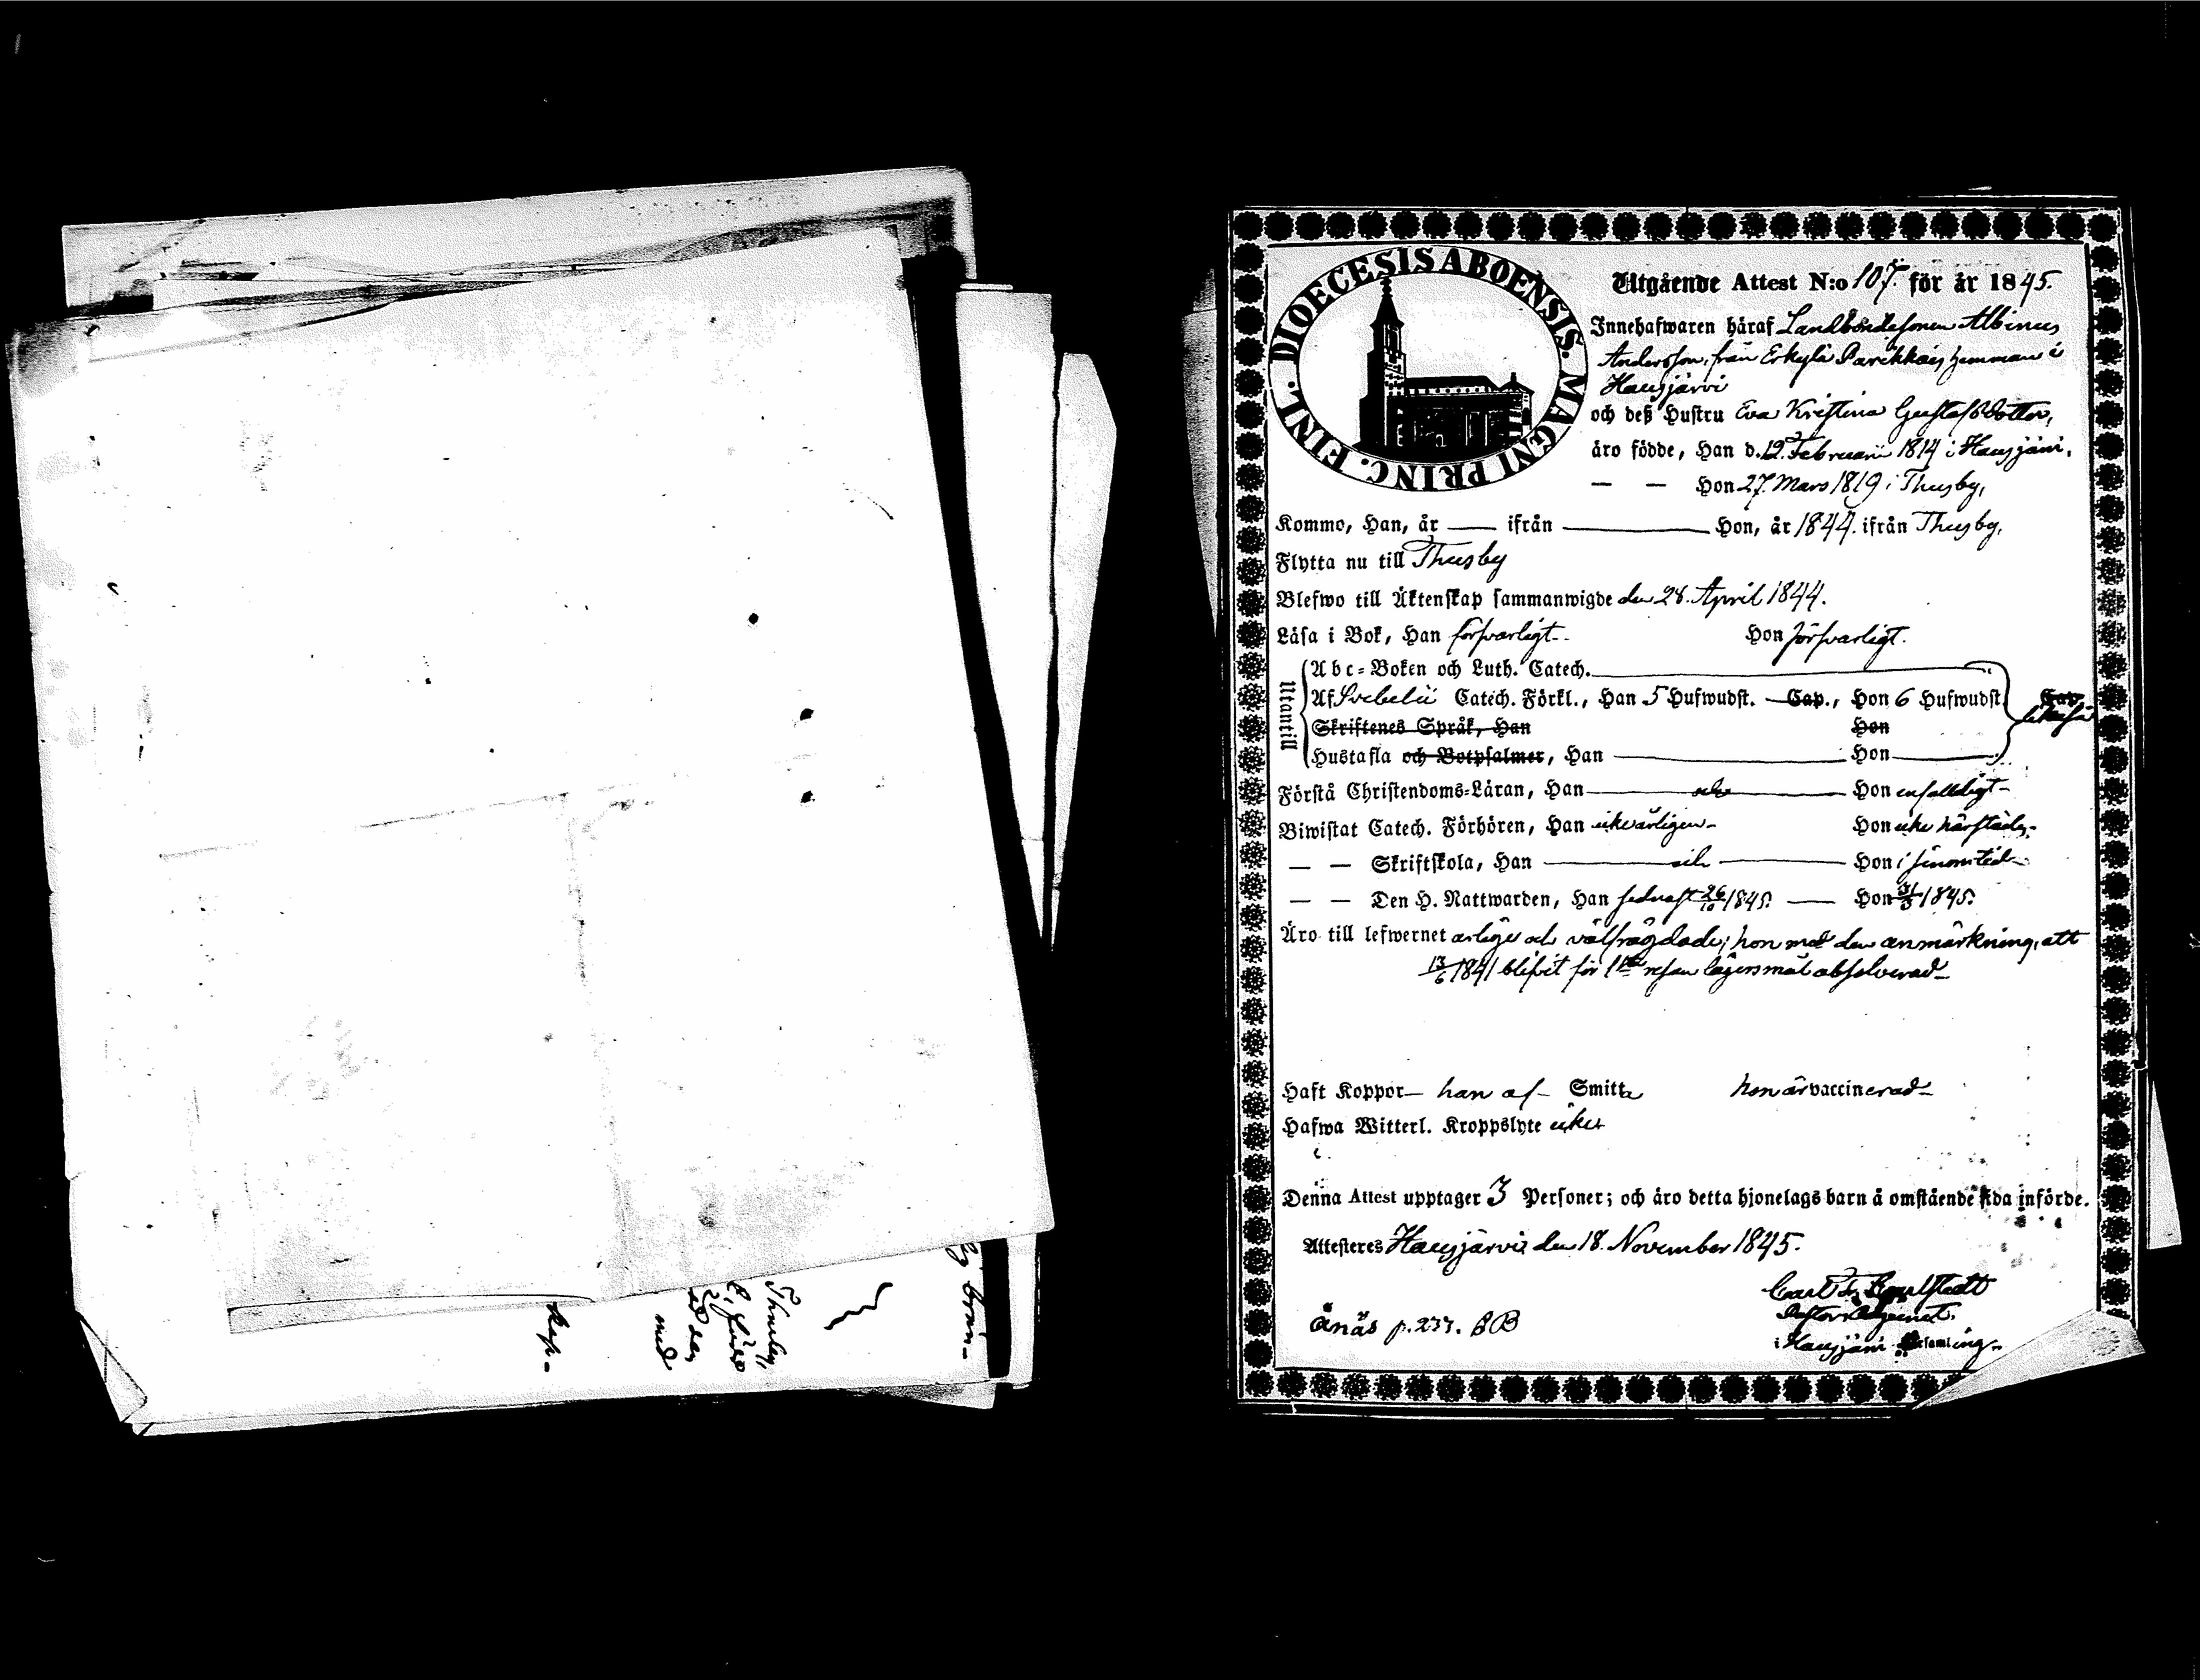 DIOECESIS ABOENSIS. MAGNI PRINC. FINL.
Utgående Attest N:o 107. för år 1845.
Innehafwaren häraf Landbondesonen Albinus
Andersson, från Erkylä Parikkais hemman i
Hausjärvi
och deß Hustru Eva Kristina Gustafsdotter,
äro födde, Han d. 12. Februarii 1814 i Hausjärvi,
— — Hon 27. Mars 1819 i Thusby,
Kommo, Han, år — ifrån — Hon, år 1844. ifrån Thusby,
Flytta nu till Thusby
Blefwo till Äktenskap sammanwigde den 28. April 1844.
Läsa i Bok, Han försvarligt. Hon försvarligt.
Utantill
Abc-Boken och Luth. Catech.
Af Svebelii Catech. Förkl., Han 5 Hufwudst. Cap., Hon 6 Hufwudst. Cap
Skriftenes Språk, Han Hon
Hustafla och Botpsalmer, Han — Hon —
Förstå Christendoms-Läran, Han — och — Hon enfaldigt
Biwistat Catech. Förhören, Han icke årligen Hon icke härstädes
— — Skriftskola, Han — Hon i sinom tid
— — Den H. Nattwarden, Han sednast 26/10 1845. — Hon 1845.
Äro till lefwernet ärlige och välfrägdade; hon med den anmärkning, att
13/6 1841 blifvit för 1sta resan lägersmål absolverad
Haft Koppor — han af — Smitta hon är vaccinerad
Hafwa Witterl. Kroppslyte icke
Denna Attest upptager 3 Personer; och äro detta hjonelags barn å omstående sida införde.
Attesteres Hausjärvi, den 18. November 1845.
Carl
i Hausjärvi Församling
Ånäs p. 237. BB
Thusby,
med